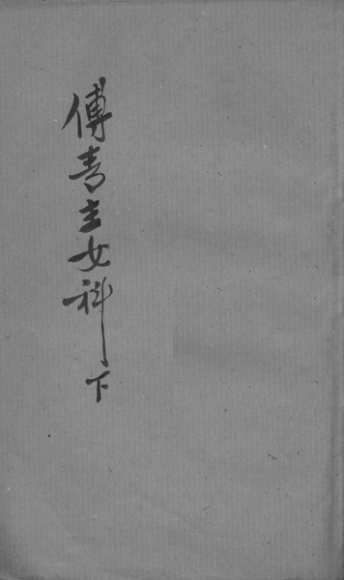 傅青主女科下